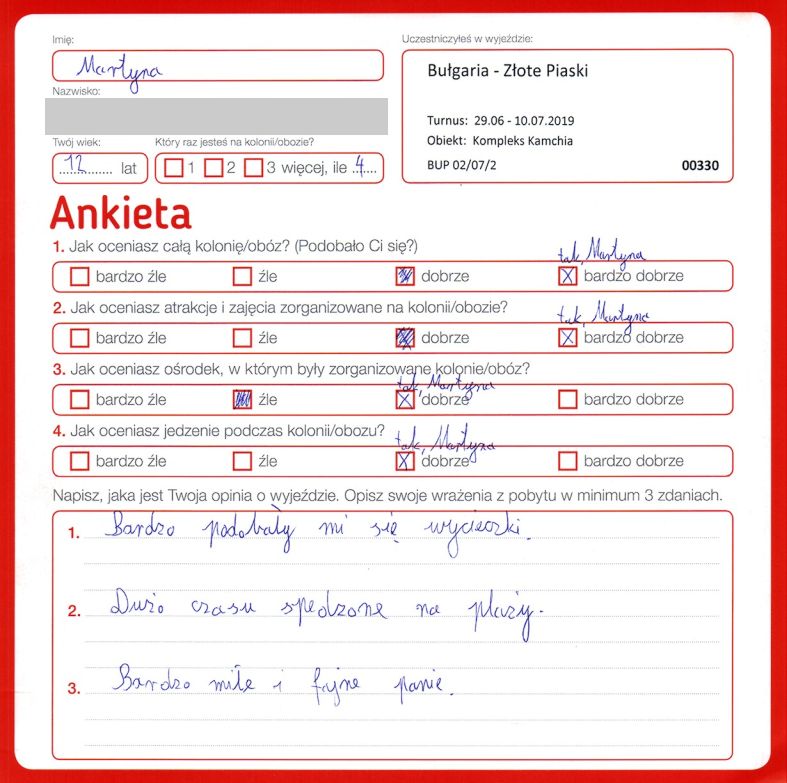 Imię:
Martyna
Nazwisko:
Twój wiek:
12 lat
Który raz jesteś na kolonii/obozie?
1 2 3 więcej, ile 4
Uczestniczyłeś w wyjeździe:
Bułgaria - Złote Piaski
Turnus: 29.06 - 10.07.2019
Obiekt: Kompleks Kamchia
BUP 02/07/2 00330
Ankieta
1. Jak oceniasz całą kolonię/obóz? (Podobało Ci się?)
tak, Martyna
bardzo źle źle dobrze bardzo dobrze
2. Jak oceniasz atrakcje i zajęcia zorganizowane na kolonii/obozie?
tak, Martyna
bardzo źle źle dobrze bardzo dobrze
3. Jak oceniasz ośrodek, w którym były zorganizowane kolonie/obóz?
tak, Martyna
bardzo źle źle dobrze bardzo dobrze
4. Jak oceniasz jedzenie podczas kolonii/obozu?
tak, Martyna
bardzo źle źle dobrze bardzo dobrze
Napisz, jaka jest Twoja opinia o wyjeździe. Opisz swoje wrażenia z pobytu w minimum 3 zdaniach.
1. Bardzo podobały mi się wycieczki.
2. Dużo czasu spędzone na plaży.
3. Bardzo miłe i fajne panie.